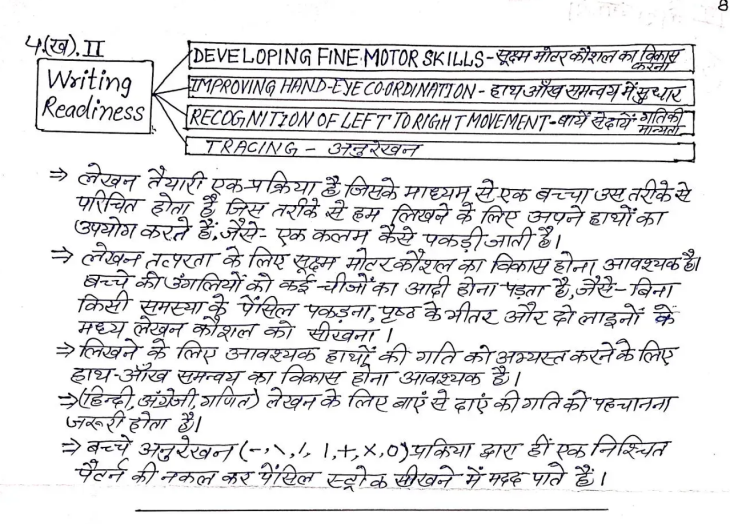 8
4.(ख).II
Writing
Readiness
DEVELOPING FINE MOTOR SKILLS - सूक्ष्म मोटर कौशल का विकास करना
IMPROVING HAND-EYE COORDINATION - हाथ आँख समन्वय में सुधार
RECOGNITION OF LEFT TO RIGHT MOVEMENT - बायें से दायें गति की मान्यता
TRACING - अनुरेखन
⇒ लेखन तैयारी एक प्रक्रिया है, जिसके माध्यम से एक बच्चा उस तरीके से
परिचित होता है, जिस तरीके से हम लिखने के लिए अपने हाथों का
उपयोग करते हैं, जैसे- एक कलम कैसे पकड़ी जाती है।
⇒ लेखन तत्परता के लिए सूक्ष्म मोटर कौशल का विकास होना आवश्यक है।
बच्चे की उंगलियों को कई चीजों का आदी होना पड़ता है, जैसे- बिना
किसी समस्या के पेंसिल पकड़ना, पृष्ठ के भीतर और दो लाइनों के
मध्य लेखन कौशल को सीखना ।
⇒ लिखने के लिए आवश्यक हाथों की गति को अभ्यस्त करने के लिए
हाथ-आँख समन्वय का विकास होना आवश्यक है।
⇒ (हिन्दी, अंग्रेजी, गणित) लेखन के लिए बाएं से दाएं की गति को पहचानना
जरूरी होता है।
⇒ बच्चे अनुरेखन (-, \, /, |, +, ×, 0) प्रक्रिया द्वारा हीं एक निश्चित
पैटर्न की नकल कर पेंसिल स्ट्रोक सीखने में मदद पाते हैं।